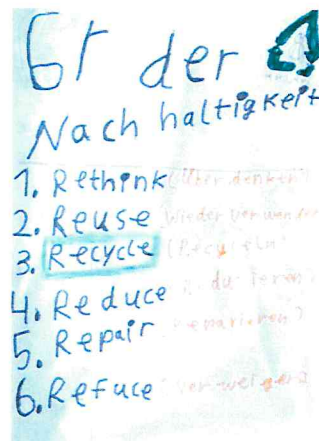 6r der
Nachhaltigkeit
1. Rethink (Überdenken)
2. Reuse (Wiederverwenden
3. Recycle (Recyceln)
4. Reduce
5. Repair (Reparieren)
6. Refuce verweigern